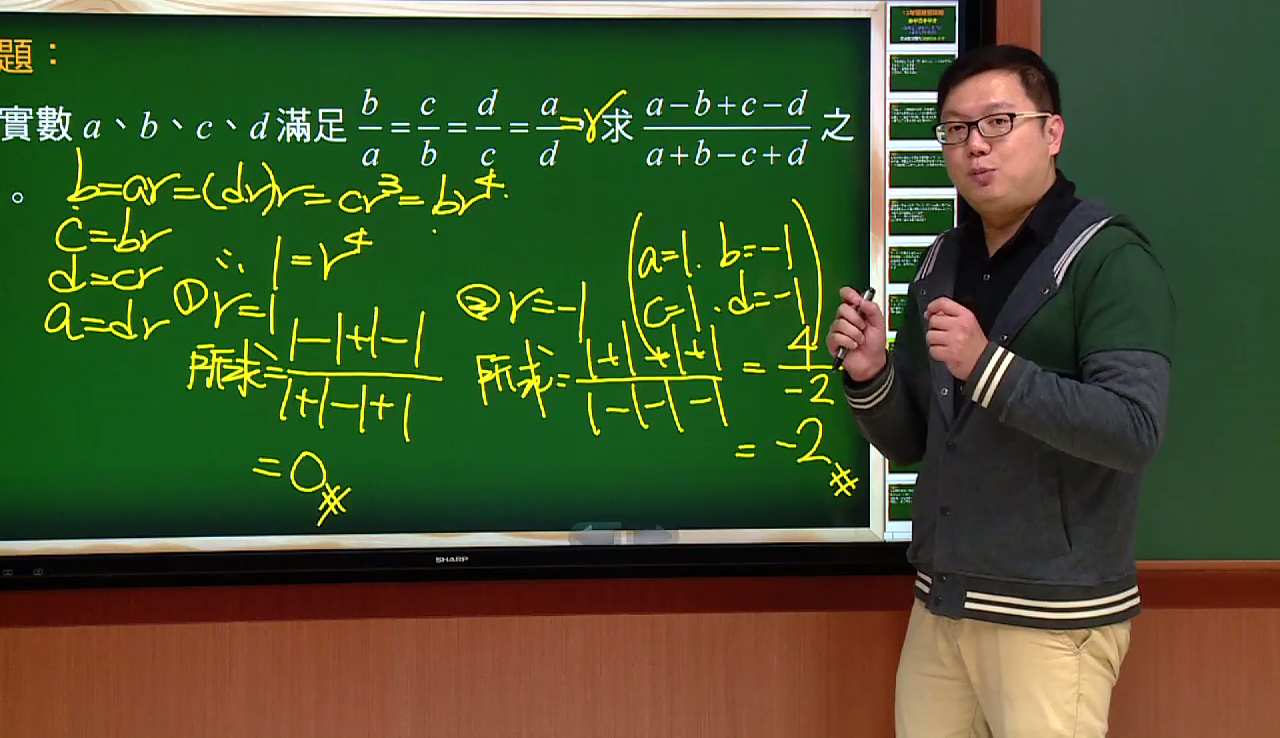 題：
實數 a、b、c、d 滿足 b/a = c/b = d/c = a/d = r 求 (a-b+c-d)/(a+b-c+d) 之
。
b=ar=(dr)r=cr³=br⁴.
c=br
d=cr
a=dr
∴ 1=r⁴
① r=1
所求=(1-1+1-1)/(1+1-1+1)
=0#
② r=-1 (a=1. b=-1
c=1. d=-1)
所求=(1+1+1+1)/(1-1-1-1) = 4/-2
= -2#
SHARP